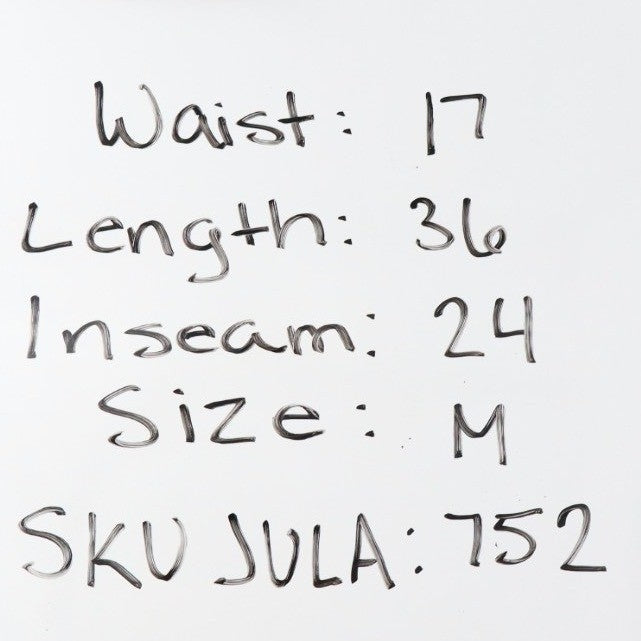 Waist: 17
Length: 36
Inseam: 24
Size: M
SKU JULA: 752